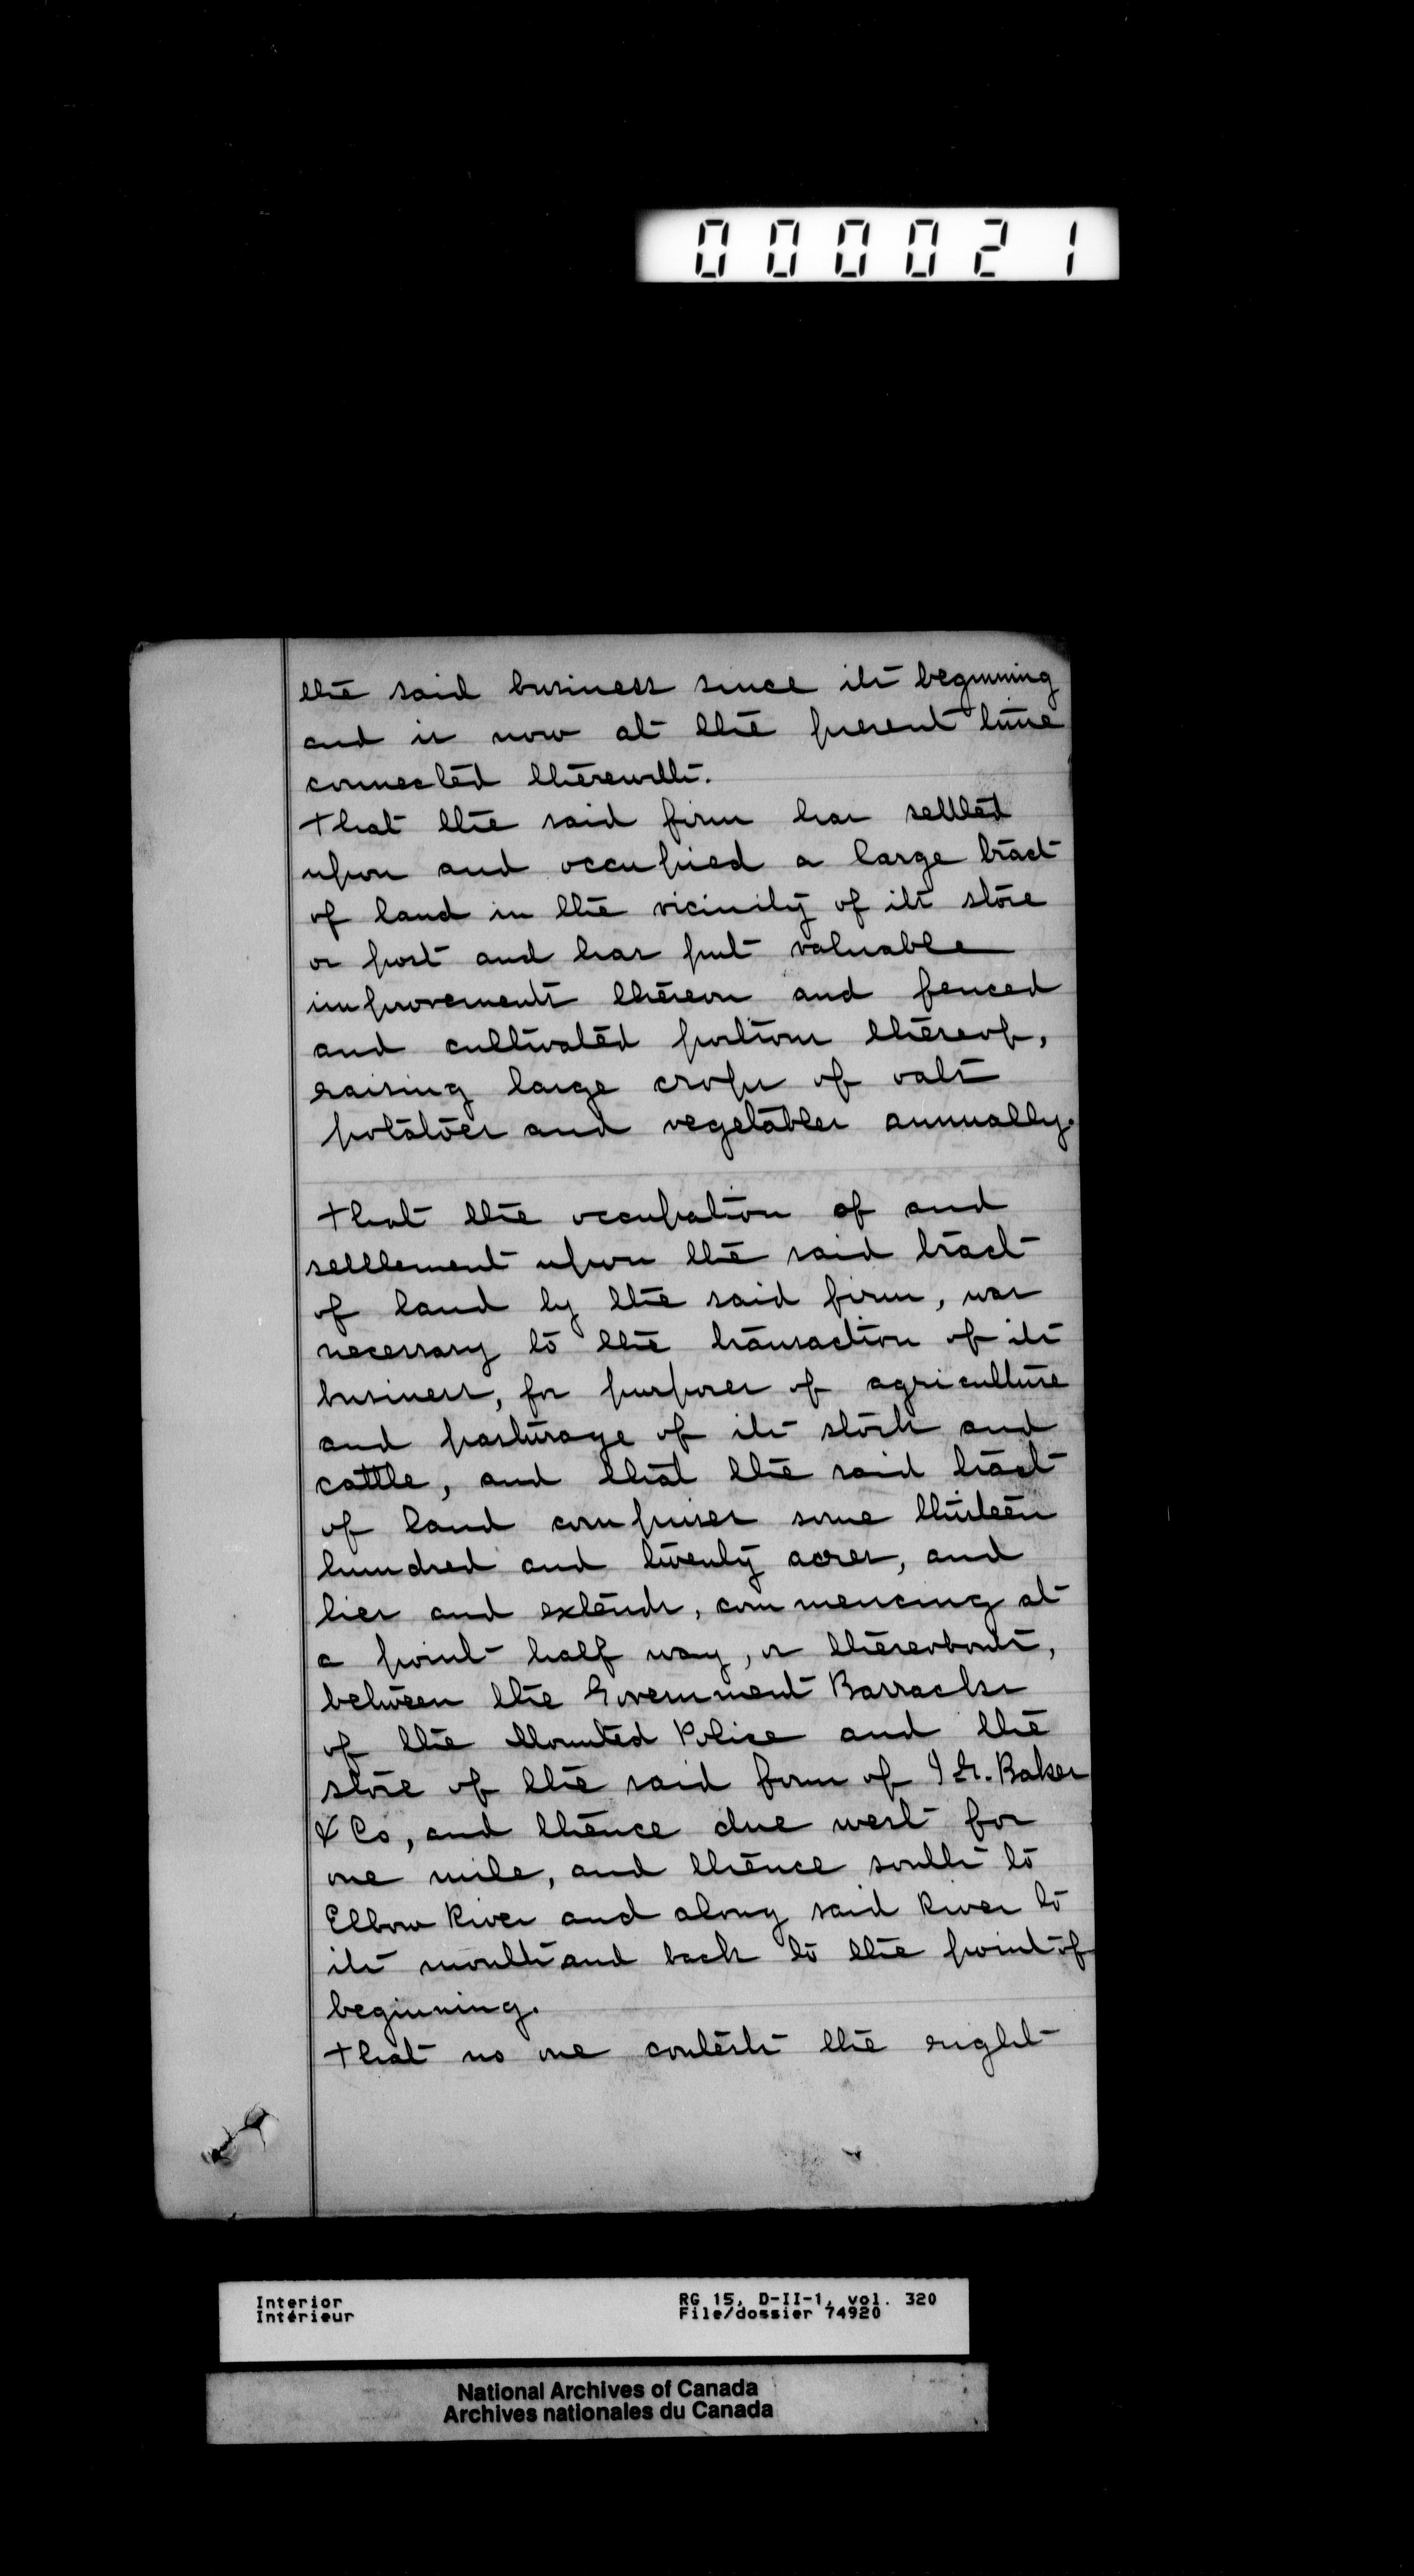 000021
the said business since its beginning
and is now at the present time
connected therewith.
That the said firm has settled
upon and occupied a large tract
of land in the vicinity of its store
or post and has put valuable
improvements thereon and fenced
and cultivated portions thereof,
raising large crops of oats
potatoes and vegetables annually.
That the occupation of and
settlement upon the said tract
of land by the said firm, was
necessary to the transaction of its
business, for purposes of agriculture
and pasturage of its stock and
cattle, and that the said tract
of land comprises some thirteen
hundred and twenty acres, and
lies and extends, commencing at
a point half way, or thereabouts,
between the Government Barracks
of the Mounted Police and the
store of the said firm of I G. Baker
& Co, and thence due west for
one mile, and thence south to
Elbow River and along said River to
its mouth and back to the point of
beginning.
That no one contests the right
Interior
Intérieur
RG 15, D-II-1, vol. 320
File/dossier 74920
National Archives of Canada
Archives nationales du Canada